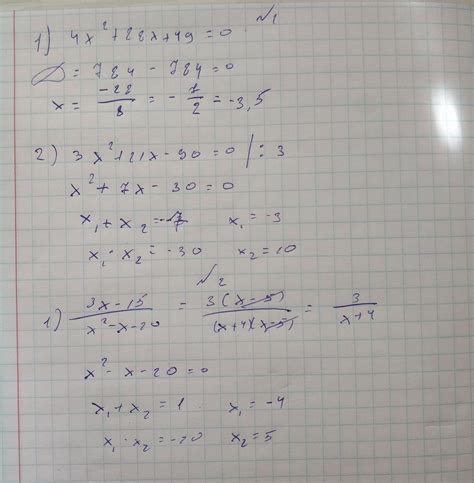 №1
1) 4x² + 28x + 49 = 0
D = 784 - 784 = 0
x = -28/8 = -7/2 = -3,5
2) 3x² + 21x - 90 = 0 | : 3
x² + 7x - 30 = 0
x₁ + x₂ = -7 x₁ = -3
x₁ · x₂ = -30 x₂ = 10
№2
1) 3x - 15 / x² - x - 20 = 3(x - 5) / (x+4)(x-5) = 3 / x+4
x² - x - 20 = 0
x₁ + x₂ = 1 x₁ = -4
x₁ · x₂ = -20 x₂ = 5